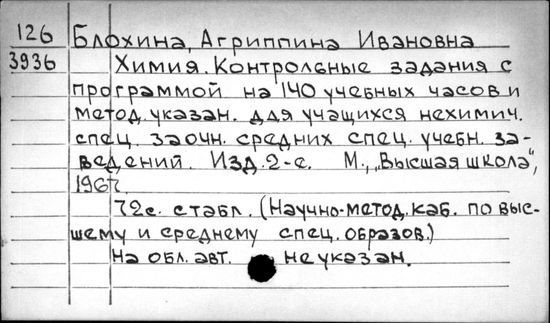 126 Блохина, Агриппина Ивановна
3936 Химия. Контрольные задания с
программой на 140 учебных часов и
метод. указан. для учащихся нехимич.
спец. заочн. средних спец. учебн. за-
ведений. Изд. 2-е. М., "Высшая школа",
1967.
72с. с табл. (Научно-метод. каб. по выс-
шему и среднему спец. образов.)
На обл. авт. не указан.